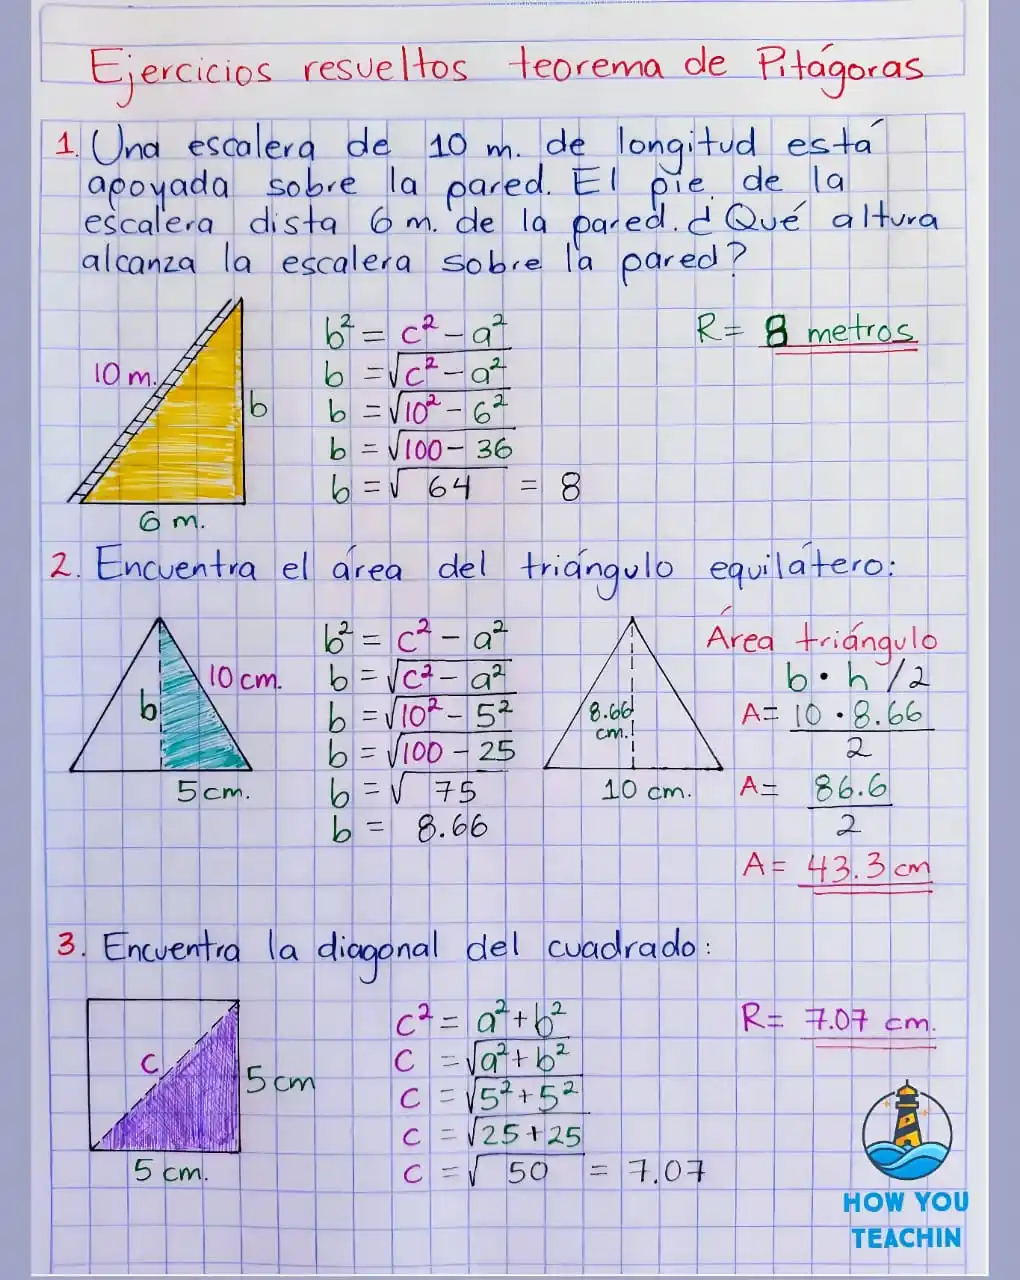 Ejercicios resueltos teorema de Pitágoras
1. Una escalera de 10 m. de longitud está
apoyada sobre la pared. El pie de la
escalera dista 6 m. de la pared. ¿Qué altura
alcanza la escalera sobre la pared?
10 m.
b
6 m.
b² = c² - a²
b = √c² - a²
b = √10² - 6²
b = √100 - 36
b = √64 = 8
R = 8 metros
2. Encuentra el área del triángulo equilátero:
b
10 cm.
5 cm.
b² = c² - a²
b = √c² - a²
b = √10² - 5²
b = √100 - 25
b = √75
b = 8.66
8.66
cm.
10 cm.
Área triángulo
b · h / 2
A = 10 · 8.66
2
A = 86.6
2
A = 43.3 cm
3. Encuentra la diagonal del cuadrado:
c
5 cm
5 cm.
c² = a² + b²
c = √a² + b²
c = √5² + 5²
c = √25 + 25
c = √50 = 7.07
R = 7.07 cm.
HOW YOU
TEACHIN